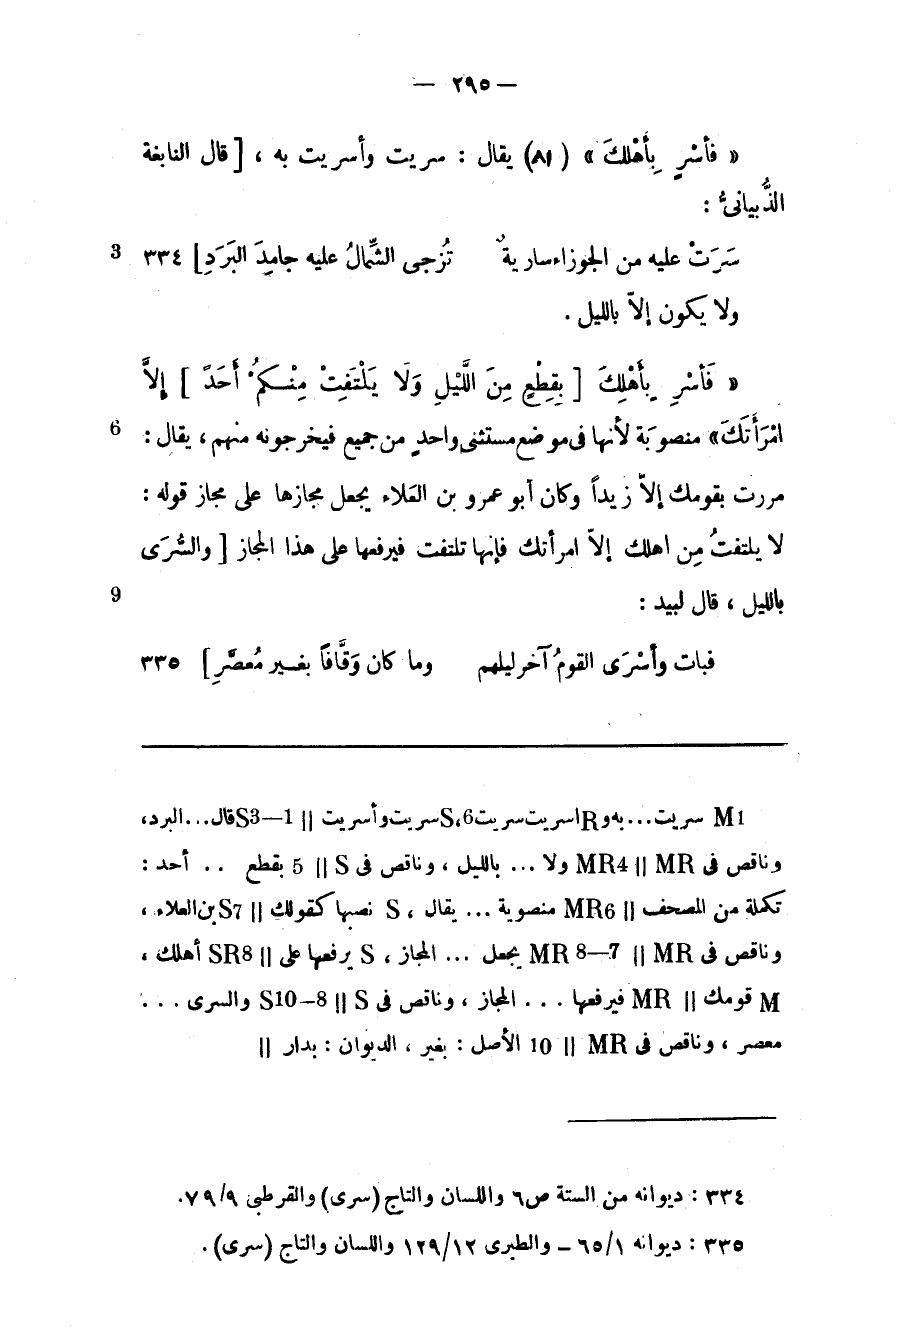 — ٢٩٥ —
« فَأَسْرِ بِأَهْلِكَ » (٨١) يقال : سريت وأسريت به ، [ قال النابغة
الذُّبيانىُّ :
سَرَتْ عليه من الجوزاء سارية ٌ تُزجى الشَّمالُ عليه جامِدَ البَرَدِ] ٣٣٤ 3
ولا يكون إلاّ بالليل .
« فَأَسْرِ بِأَهْلِكَ [ بِقِطْعٍ مِنَ اللَّيْلِ وَلَا يَلْتَفِتْ مِنْكُمْ أَحَدٌ ] إِلاَّ
امْرَأَتَكَ» منصوبَة لأنها فى موضع مستثنى واحدٍ من جميع فيخرجونه منهم ، يقال : 6
مررت بقومك إلاّ زيداً وكان أبو عمرو بن العَلاء يجعل مجازها على مجاز قوله :
لا يلتفتُ مِن اهلك إلاّ امرأتك فإنها تلتفت فيرفعها على هذا المجاز [ والسُّرَى
بالليل ، قال لبيد : 9
فبات وأسْرَى القومُ آخر ليلهم وما كان وَقَّافاً بغير مُعصَّرِ] ٣٣٥
M1 سريت...به وR اسريت سريت S،6 سريت وأسريت || S3—1 قال...البرد،
وناقص فى MR || MR4 ولا ... بالليل ، وناقص فى S || 5 بقطع .. أحد :
تكملة من المصحف || MR6 منصوبة ... يقال ، S نصبها كقولك || S7 بن العلاء ،
وناقص فى MR || MR 8—7 يجعل ... المجاز ، S يرفعها على || SR8 أهلك ،
M قومك || MR فيرفعها ... المجاز ، وناقص فى S || S10–8 والسرى ...
معصر ، وناقص فى MR || 10 الأصل : بغير ، الديوان : بدار ||
٣٣٤ : ديوانه من الستة ص٦ واللسان والتاج (سرى) والقرطبى ٧٩/٩.
٣٣٥ : ديوانه ٦٥/١ – والطبرى ١٢٩/١٢ واللسان والتاج (سرى) .